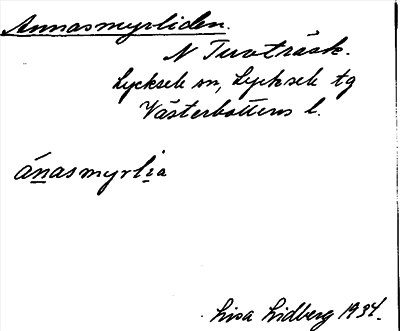 Annasmyrliden.
N Tuvträsk.
Lycksele sn, Lycksele tg
Västerbottens l.
ánasmyrlia
Lisa Lidberg 1934.